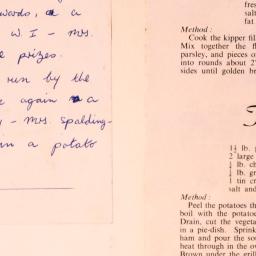 wards, a a
W. I - Mrs.
e prizes.
run by the
e again a
y - Mrs. Spalding-
in a potato
fres
salt
fat
Method :
Cook the kipper fil
Mix together the fl
parsley, and pieces o
into rounds about 2"
sides until golden br
1½ lb. p
2 large
¼ lb. ch
¼ lb. gr
1 tin cr
salt and
Method :
Peel the potatoes th
boil with the potatoe
Drain, cut the vegeta
in a pie-dish. Sprin
ham and pour the sou
heat through in the ov
Brown under the grill